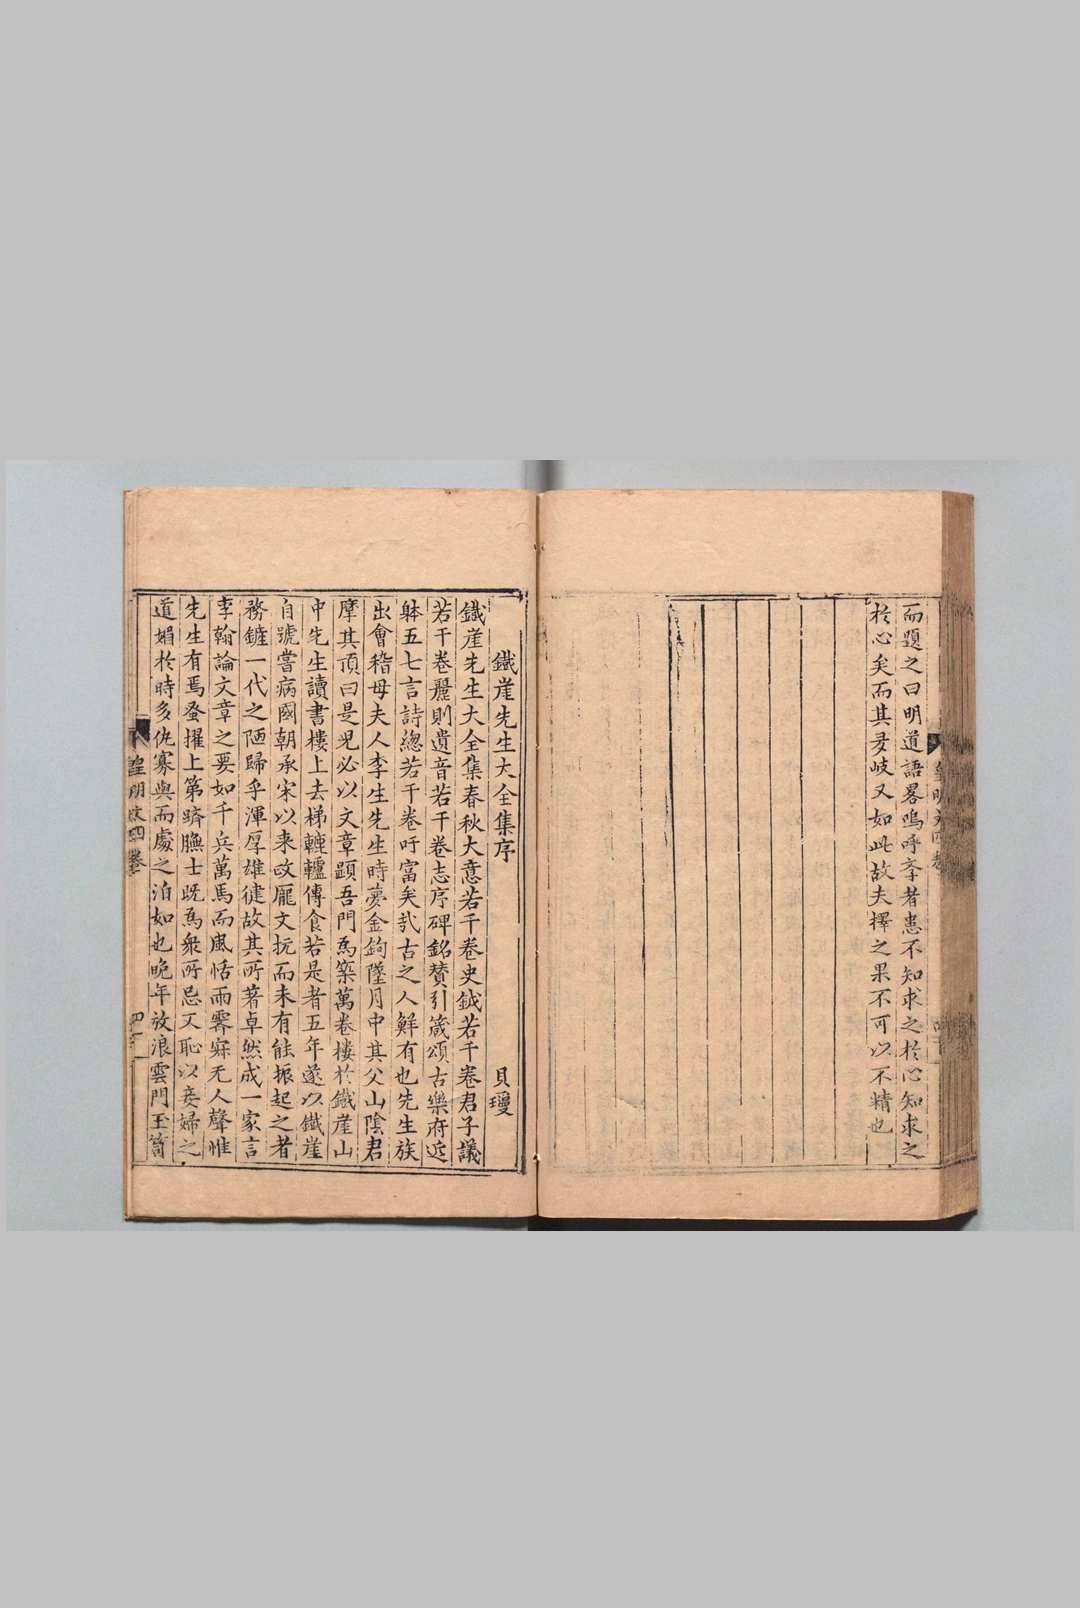 而題之曰明道語畧嗚呼孝者患不知求之扵心知求之
扵心矣而其多岐又如此故夫擇之果不可以不精也
鐵崖先生大全集序
貝瓊
鐵崖先生大全集春秋大意若干卷史鉞若干卷君子議
若干卷麗則遺音若干卷志序碑銘賛引箴頌古樂府近
躰五七言詩緫若干卷吁富矣㢤古之人鮮有也先生族
出會稽母夫人李生先生時夢金鉤墜月中其父山陰君
摩其頂曰是兒必以文章顕吾門為築萬卷樓扵鐵崖山
中先生讀書樓上去梯轆轤傳食若是者五年遂以鐵崖
自號嘗病國朝承宋以来政厖文抏而未有能振起之者
務鏟一代之陋歸乎渾厚雄徤故其所著卓然成一家言
李翰論文章之要如千兵萬馬而風恬雨霽寂无人聲惟
先生有焉蚤擢上第躋膴士既為衆所忌又恥以妾婦之
道媚扵時多仇寡與而處之泊如也晚年放浪雲門玉笥
皇明文四卷